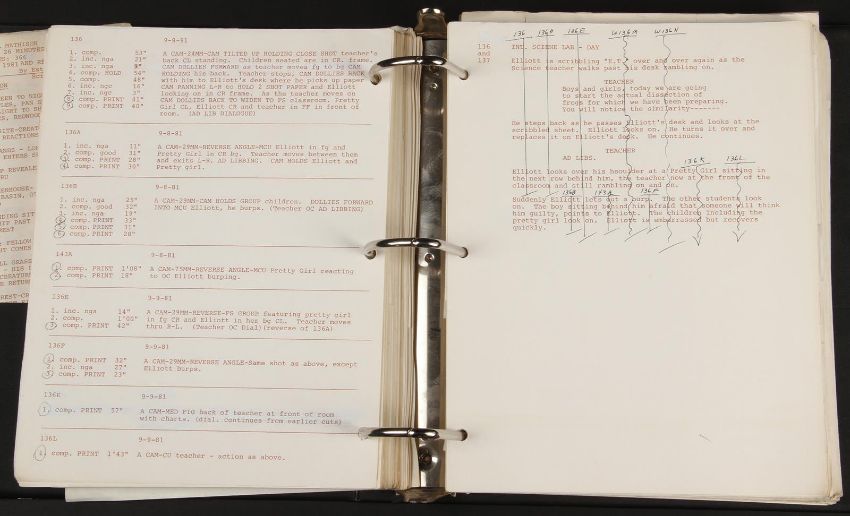 MATHISON
26 MINUTES
: 366
1981 AND RE
By Est
136 9-9-81
1. comp. 53"
2. inc. nga 21"
3. inc. nga 9"
4. comp. HOLD 54"
5. comp. 48"
6. inc. ngc 16"
7. inc. ngc 3"
8. comp. PRINT 41"
9. comp. PRINT 40"
A CAM-24MM-CAM TILTED UP HOLDING CLOSE SHOT teacher's
back CU standing. Children seated are in CR. frame.
CAM DOLLIES FORWARD as teacher moves fg to bg CAM
HOLDING his back. Teacher stops, CAM DOLLIES BACK
with him to Elliott's desk where he picks up paper
CAM PANNING L-R to HOLD 2 SHOT PAPER and Elliott
looking on in CR frame. As the teacher moves on
CAM DOLLIES BACK TO WIDEN TO FS classroom. Pretty
Girl CL, Elliott CR and teacher in FF in front of
room. (AD LIB DIALOGUE)
136A 9-9-81
1. inc. nga 11"
2. comp. good 31"
3. comp. PRINT 28"
4. comp. PRINT 30"
A CAM-29MM-REVERSE ANGLE-MCU Elliott in fg and
Pretty Girl in CR bg. Teacher moves between them
and exits L-R. AD LIBBING. CAM HOLDS Elliott and
Pretty girl.
1. inc. nga 23"
2. comp. good 32"
3. inc. nga 19"
comp. PRINT 33"
comp. PRINT 31"
comp. PRINT 28"
A CAM-29MM-CAM HOLDS GROUP children. DOLLIES FORWARD
INTO MCU Elliott, he burps. (Teacher OC AD LIBBING)
143A 9-9-81
1. comp. PRINT 1'08"
2. comp. PRINT 18"
A CAM-75MM-REVERSE ANGLE-MCU Pretty Girl reacting
to OC Elliott burping.
136E 9-9-81
1. inc. nga 14"
2. comp. 1'00"
3. comp. PRINT 42"
A CAM-29MM-REVERSE-FS GROUP featuring pretty girl
in fg CR and Elliott in her bg CL. Teacher moves
thru R-L. (Teacher OC Dial)(reverse of 136A)
136F 9-9-81
1. comp. PRINT 32"
2. inc. nga 27"
3. comp. PRINT 23"
A CAM-29MM-REVERSE ANGLE-Same shot as above, except
Elliott burps.
136K 9-9-81
1. comp. PRINT 57"
A CAM-MED FIG back of teacher at front of room
with charts. (dial. continues from earlier cuts)
136L 9-9-81
comp. PRINT 1'43" A CAM-CU teacher - action as above.
136 136A 136E W136M W136N
136
and
137
INT. SCIENCE LAB - DAY
Elliott is scribbling "E.T." over and over again as the
Science teacher walks past his desk rambling on.
TEACHER
Boys and girls, today we are going
to start the actual dissection of
frogs for which we have been preparing.
You will notice the similarity-------
He stops back as he passes Elliott's desk and looks at the
scribbled sheet. Elliott looks on. He turns it over and
replaces it on Elliott's desk. He continues.
TEACHER
AD LIBS.
136K 136L
Elliott looks over his shoulder at a Pretty Girl sitting in
the next row behind him, the teacher now at the front of the
classroom and still rambling on and on.
136B 143A 136F
Suddenly Elliott lets out a burp. The other students look
on. The boy sitting behind him afraid that someone will think
him guilty, points to Elliott. The children including the
pretty girl look on. Elliott is embarrassed but recovers
quickly.